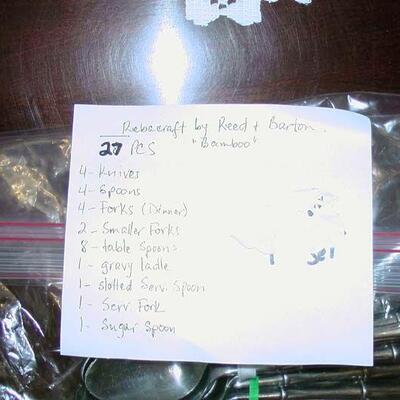 Rebacraft by Reed + Barton.
27 PCS "Bamboo"
4- Knives
4- Spoons
4- Forks (Dinner)
2- Smaller Forks
8- table Spoons
1- gravy ladle
1- slotted Serv. Spoon
1- Serv. Fork
1- Sugar Spoon
1 set